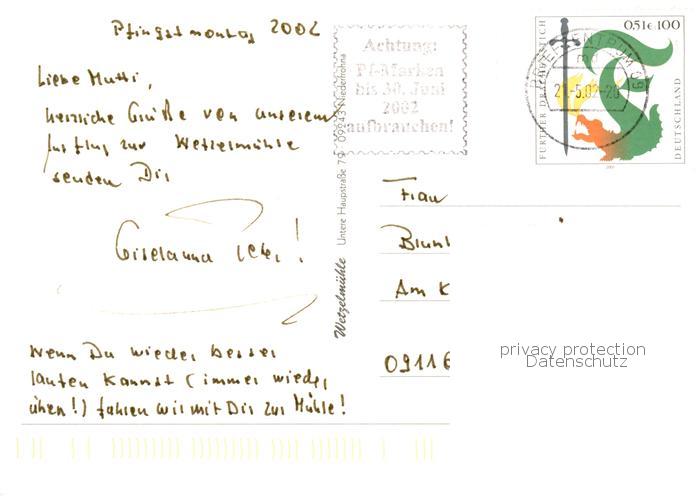 Pfingstmontag 2002
Liebe Mutti,
herzliche Grüße von unserem
Ausflug zur Wetzelmühle
senden Dir
Giselanna !
Wenn Du wieder besser
laufen kannst (immer wieder
üben!) fahren wir mit Dir zur Mühle!
Wetzelmühle Untere Hauptstraße 79 · 09243 Niederfrohna
Achtung:
Pf-Marken
bis 30. Juni
2002
aufbrauchen!
BRIEFZENTRUM 09
21.5.02-20
FURTHER DRACHENSTICH
0,51€ 100
DEUTSCHLAND
Frau
Am K
09116
privacy protection
Datenschutz